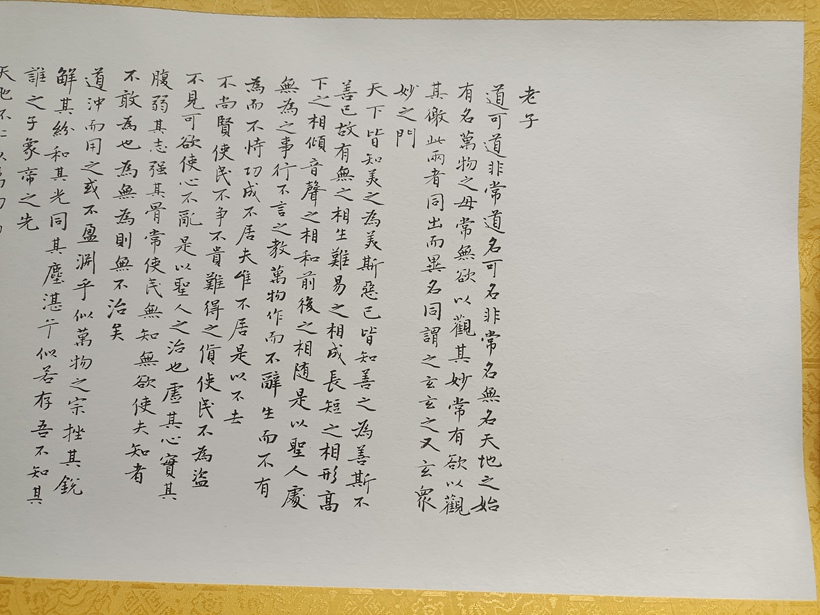 老子
道可道非常道名可名非常名無名天地之始
有名萬物之母常無欲以觀其妙常有欲以觀
其徼此兩者同出而異名同謂之玄玄之又玄衆
妙之門
天下皆知美之為美斯惡已皆知善之為善斯不
善已故有無之相生難易之相成長短之相形高
下之相傾音聲之相和前後之相随是以聖人處
無為之事行不言之教萬物作而不辭生而不有
為而不恃功成不居夫惟不居是以不去
不尚賢使民不争不貴難得之貨使民不為盜
不見可欲使心不亂是以聖人之治也虛其心實其
腹弱其志强其骨常使民無知無欲使夫知者
不敢為也為無為則無不治矣
道沖而用之或不盈淵乎似萬物之宗挫其銳
解其紛和其光同其塵湛兮似若存吾不知其
誰之子象帝之先